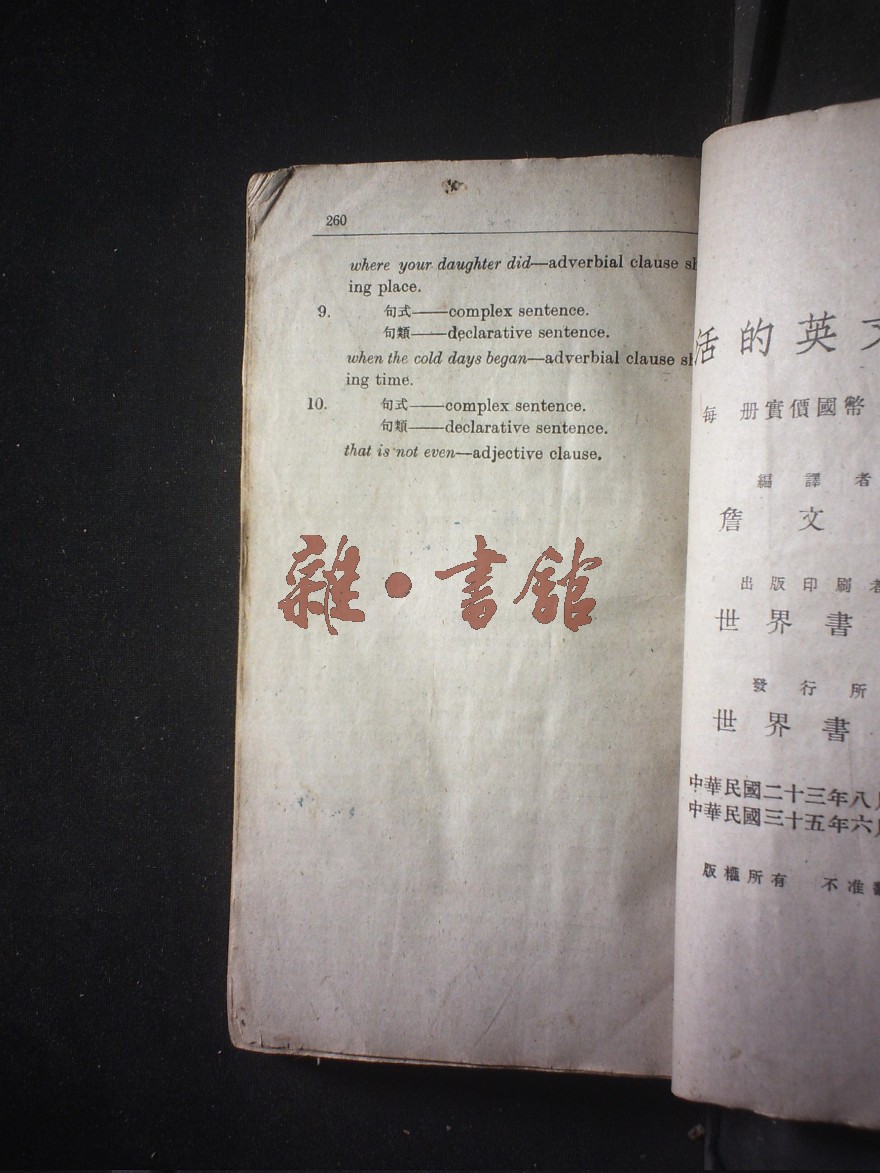 260
where your daughter did—adverbial clause
ing place.
9. 句式——complex sentence.
句類——declarative sentence.
when the cold days began—adverbial clause
ing time.
10. 句式——complex sentence.
句類——declarative sentence.
that is not even—adjective clause.
雜•書館
活的英文
每 册實價國幣
編譯者
詹文
出版印刷者
世界書
發行所
世界書
中華民國二十三年八月
中華民國三十五年六月
版權所有 不准